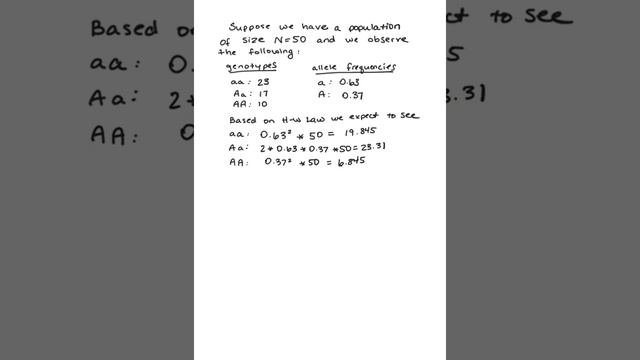 Suppose we have a population
of size N=50 and we observe
the following:
genotypes allele frequencies
aa: 23 a: 0.63
Aa: 17 A: 0.37
AA: 10
Based on H-W Law we expect to see
aa: 0.63² * 50 = 19.845
Aa: 2 * 0.63 * 0.37 * 50 = 23.31
AA: 0.37² * 50 = 6.845
Based on
aa: 0.
Aa: 2*
AA: 0
t to see
5
3.31